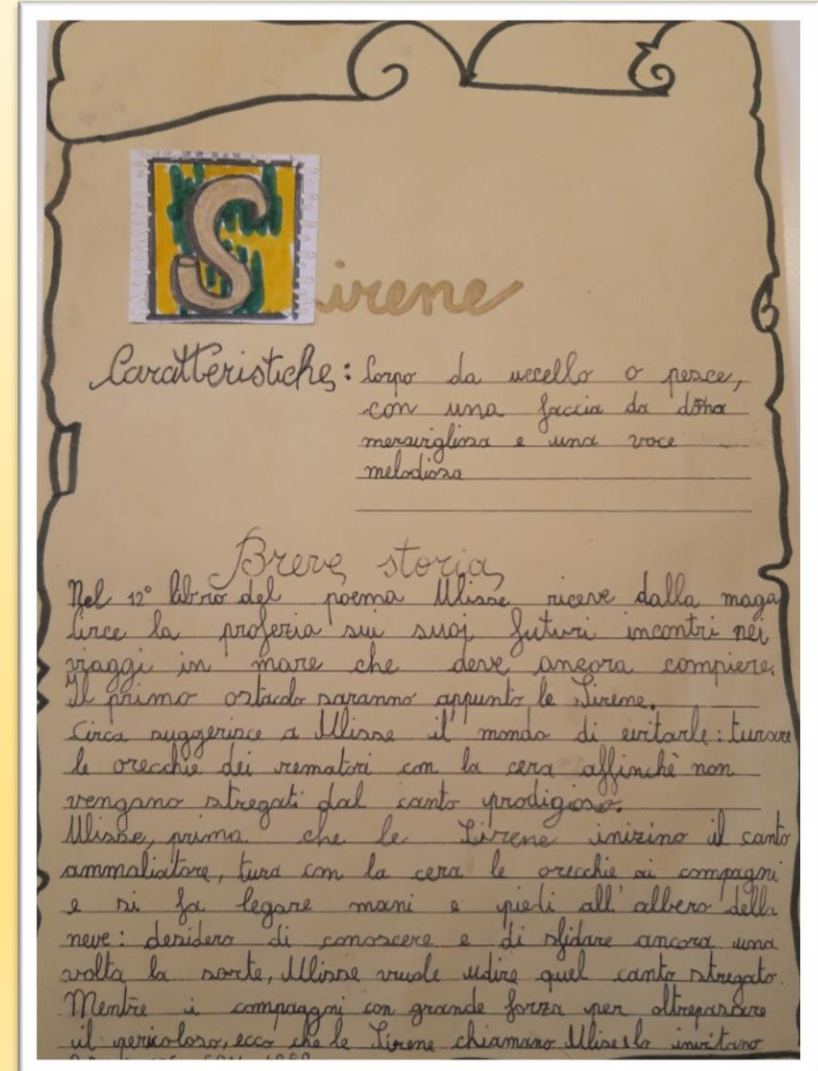 Sirene
Caratteristiche: Corpo da uccello o pesce,
con una faccia da dona
meravigliosa e una voce
melodiosa
Breve storia
Nel 12° libro del poema Ulisse riceve dalla maga
Circe la profezia sui suoi futuri incontri nei
viaggi in mare che deve ancora compiere.
Il primo ostacolo saranno appunto le Sirene.
Circa suggerisce a Ulisse il mondo di evitarle: turare
le orecchie dei rematori con la cera affinchè non
vengano stregati dal canto prodigioso.
Ulisse, prima che le Sirene inizino il canto
ammaliatore, tura con la cera le orecchie ai compagni
e si fa legare mani e piedi all'albero della
neve: desidero di conoscere e di sfidare ancora una
volta la sorte, Ulisse vuole udire quel canto stregato.
Mentre i compagni con grande forza per oltrepassare
il pericoloso, ecco che le Sirene chiamano Ulisse lo invitano